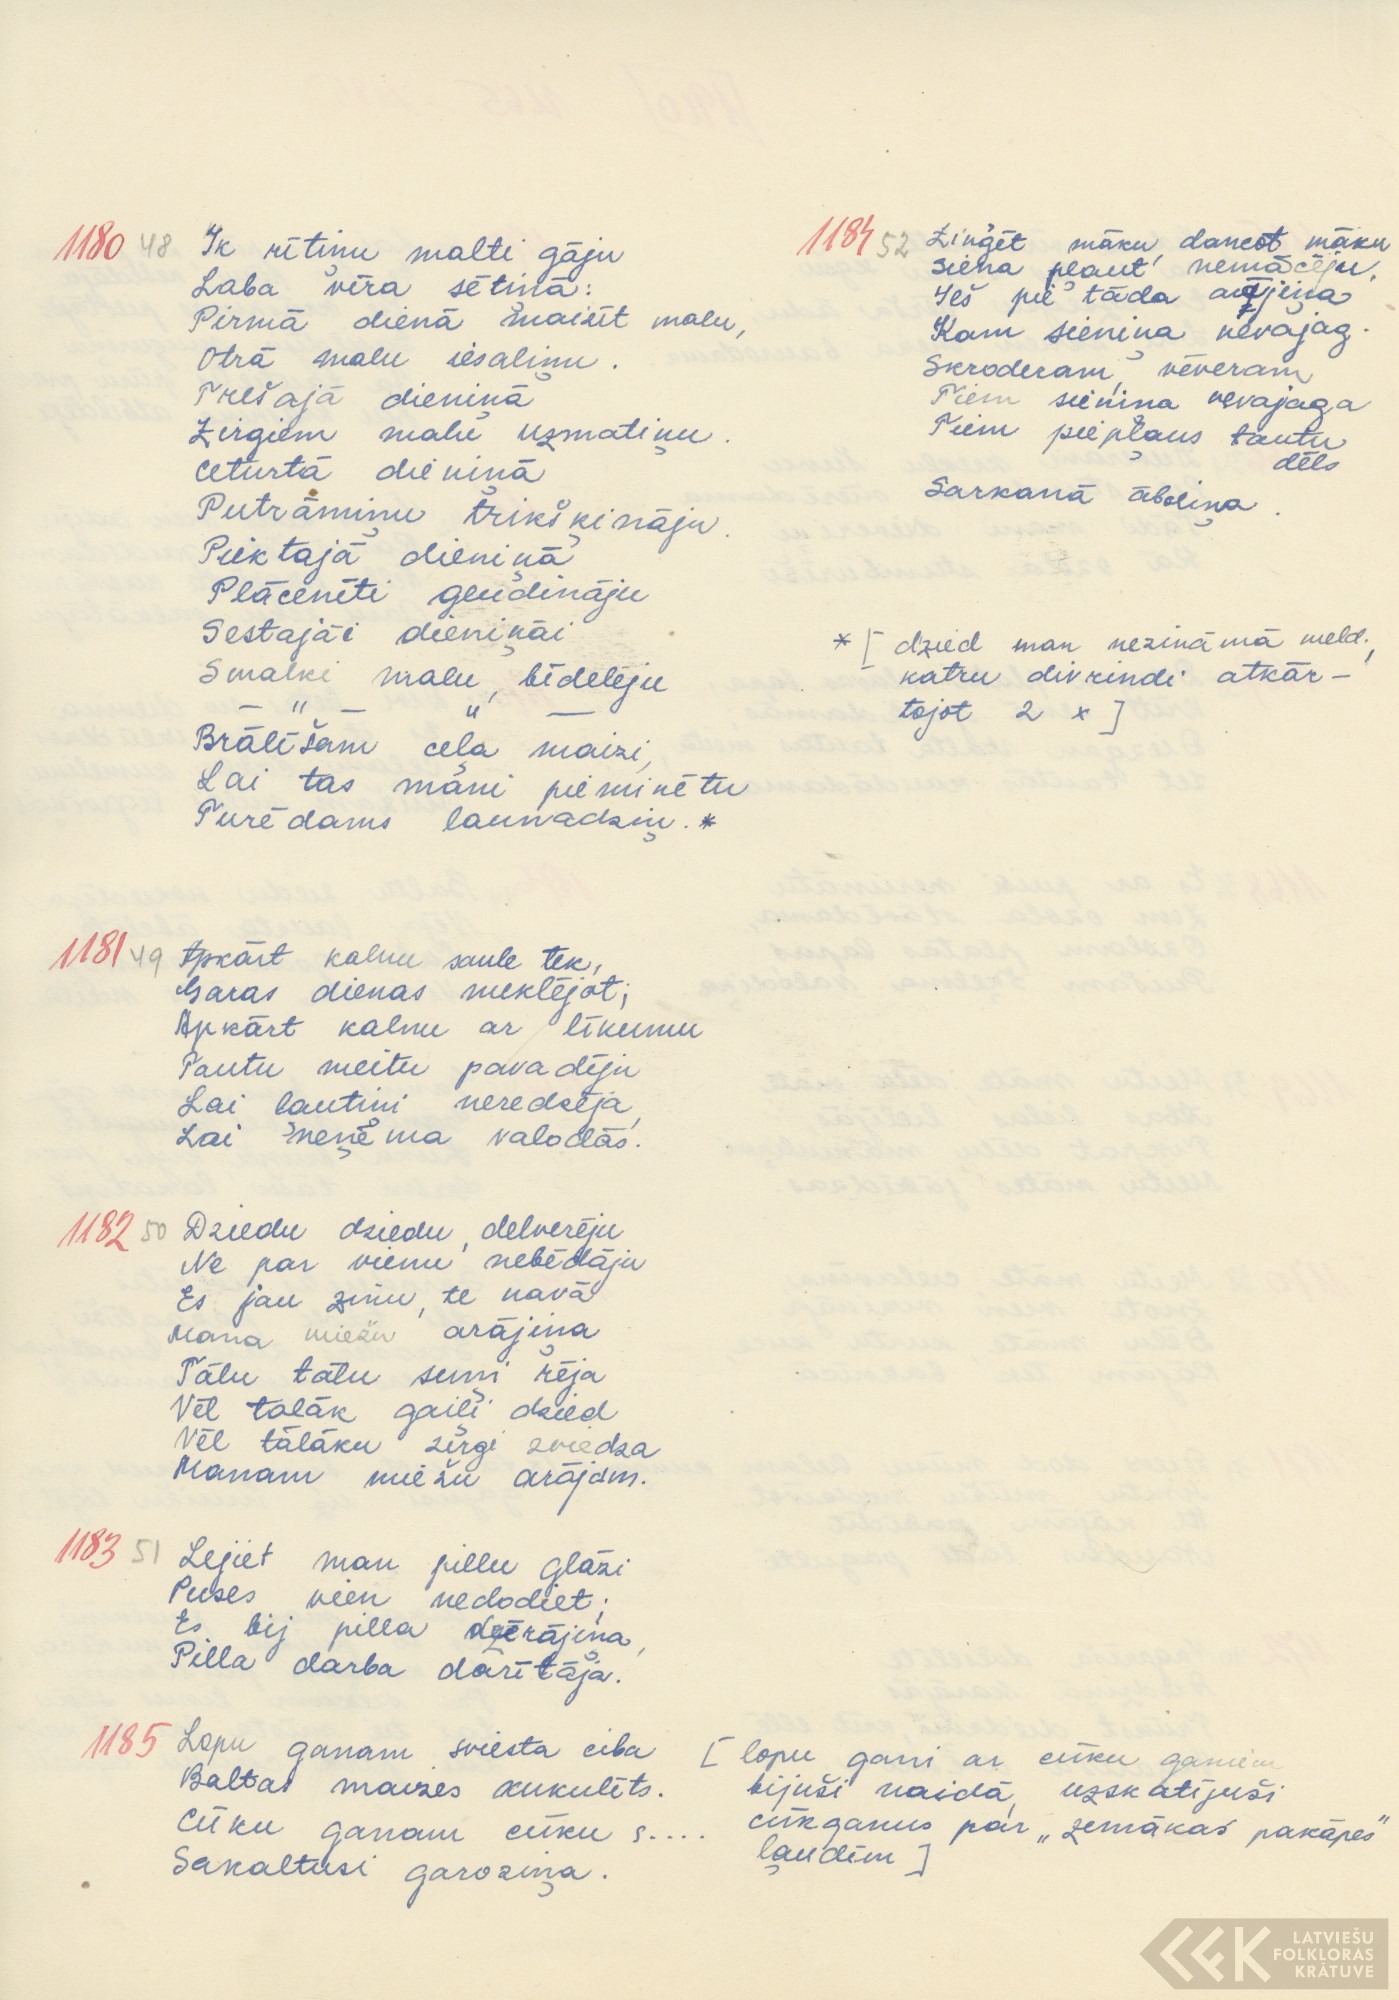 1180 48 Ik rītiņu malti gāju
Laba vīra sētiņā:
Pirmā dienā maisīt malu,
Otrā malu iesaliņu.
Trešajā dieniņā
Zirgiem malu uzmatiņu.
Ceturtā dieniņā
Putrāmiņu trikšķināju.
Piektajā dieniņā
Plācenīti gludināju
Sestajāi dieniņāi
Smalki malu, bīdelēju
— " — " —
Brālīšam ceļa maizi,
Lai tas māni pieminētu
Turēdams launadziņ. *
1181 49 Apkārt kalnu saule tek,
Garas dienas meklējot;
Apkārt kalnu ar līkumu
Tautu meitu pavadīju
Lai ļautiņi neredzēja,
Lai neņēma valodās.
1182 50 Dziedu dziedu, delverēju
Ne par vienu nebēdāju
Es jau zinu, te navā
Mana miežu arājiņa
Tālu tālu suņi rēja
Vēl tālāk gaiļi dzied
Vēl tālāku zirgi zviedza
Manam miežu arājam.
1183 51 Lejiet man pillu glāzi
Puses vien nedodiet;
Es bij pilla dzērājiņa,
Pilla darba darītāja.
1185 Lopu ganam sviesta ciba
Baltas maizes kukulīts.
Cūku ganam cūku s....
Sakaltusi garoziņa.
[ lopu gani ar cūku ganiem
bijuši naidā, uzskatījuši
cūkganus par „zemākas pakāpes"
ļaudīm ]
1184 52 Ziņģēt māku, dancot māku
Siena pļaut nemācēju,
Ieš pie tāda arājiņa
Kam sieniņa nevajag.
Skroderam, vēveram
Tiem sieniņa nevajaga
Tiem piepļaus tautu
dēls
Sarkanā āboliņa.
* [ dzied man nezināmā meld.,
katru divrindi atkār-
tojot 2 x ]
LATVIEŠU
FOLKLORAS
KRĀTUVE